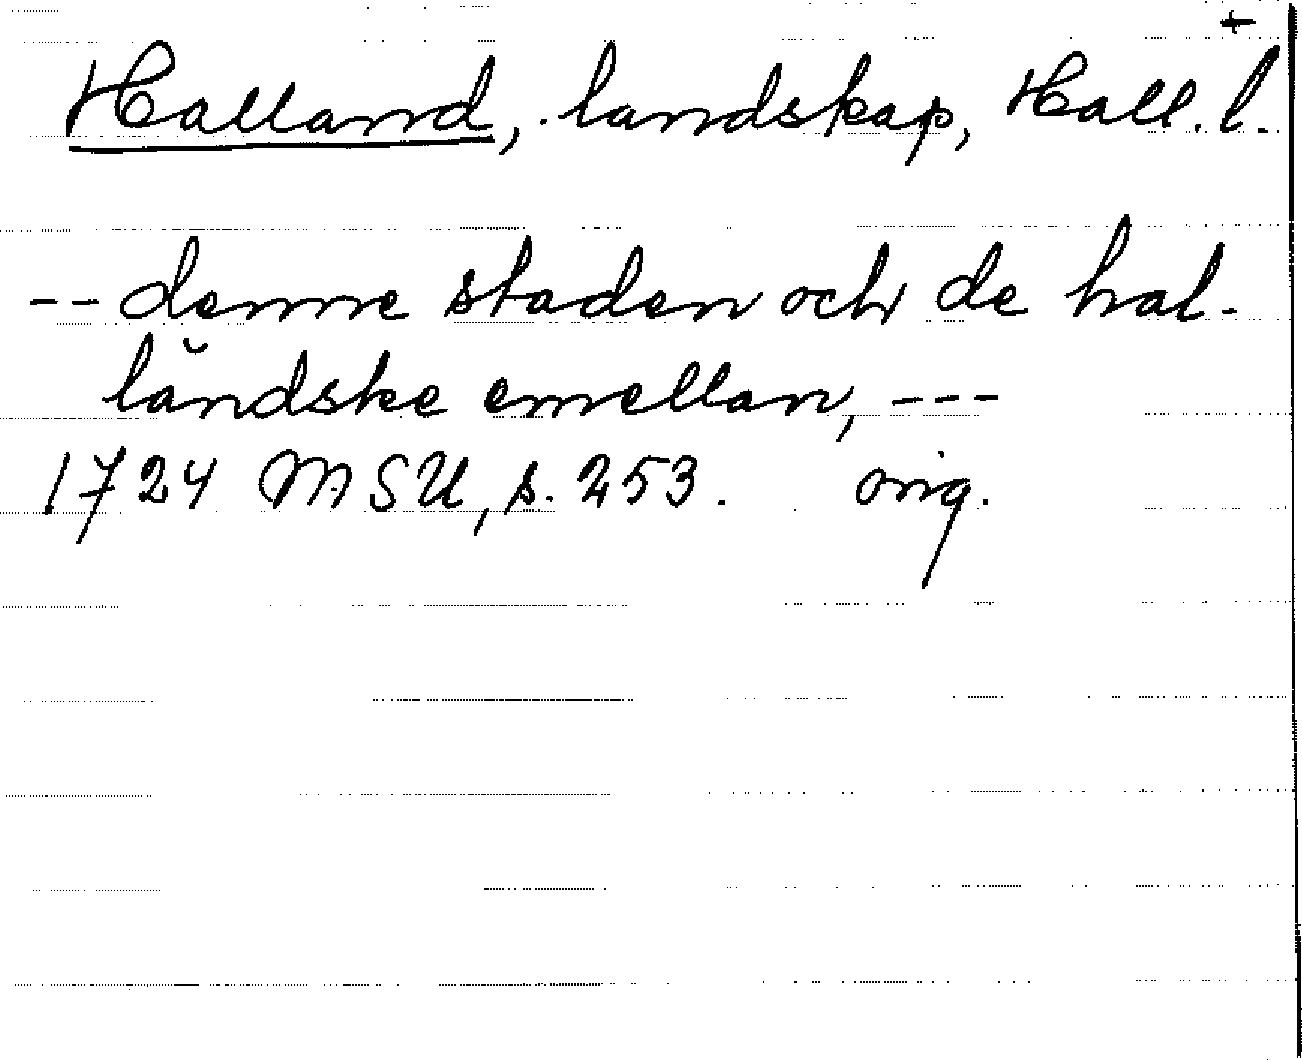 +
Halland, landskap, Hall. l.
-- denne staden och de hal-
ländske emellan, ---
1724 MSU, s. 253. orig.